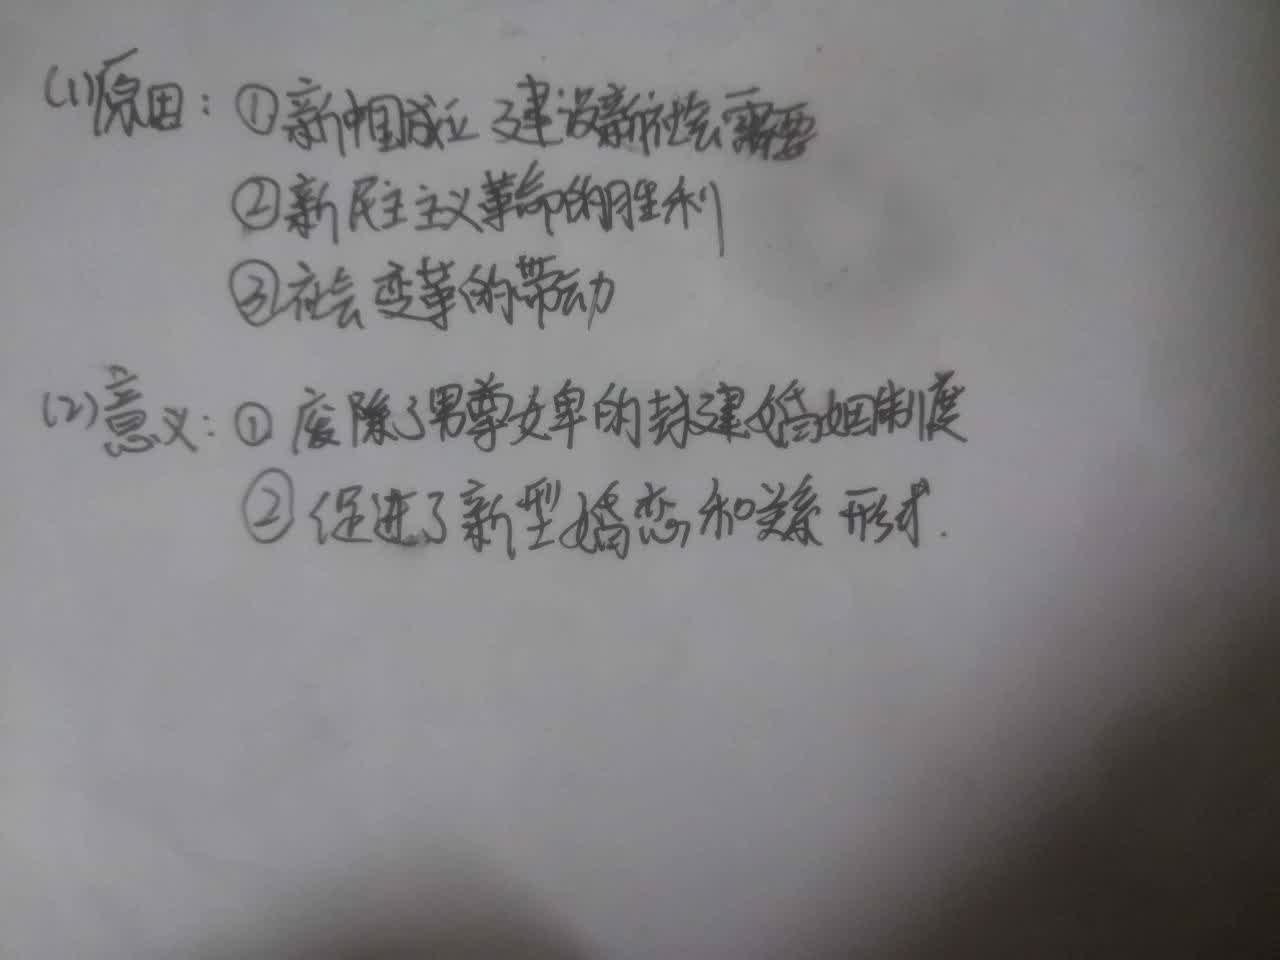 (1)原因：①新中国成立 建设新社会需要
②新民主主义革命的胜利
③社会变革的带动
(2)意义：①废除了男尊女卑的封建婚姻制度
②促进了新型婚恋和关系形成.